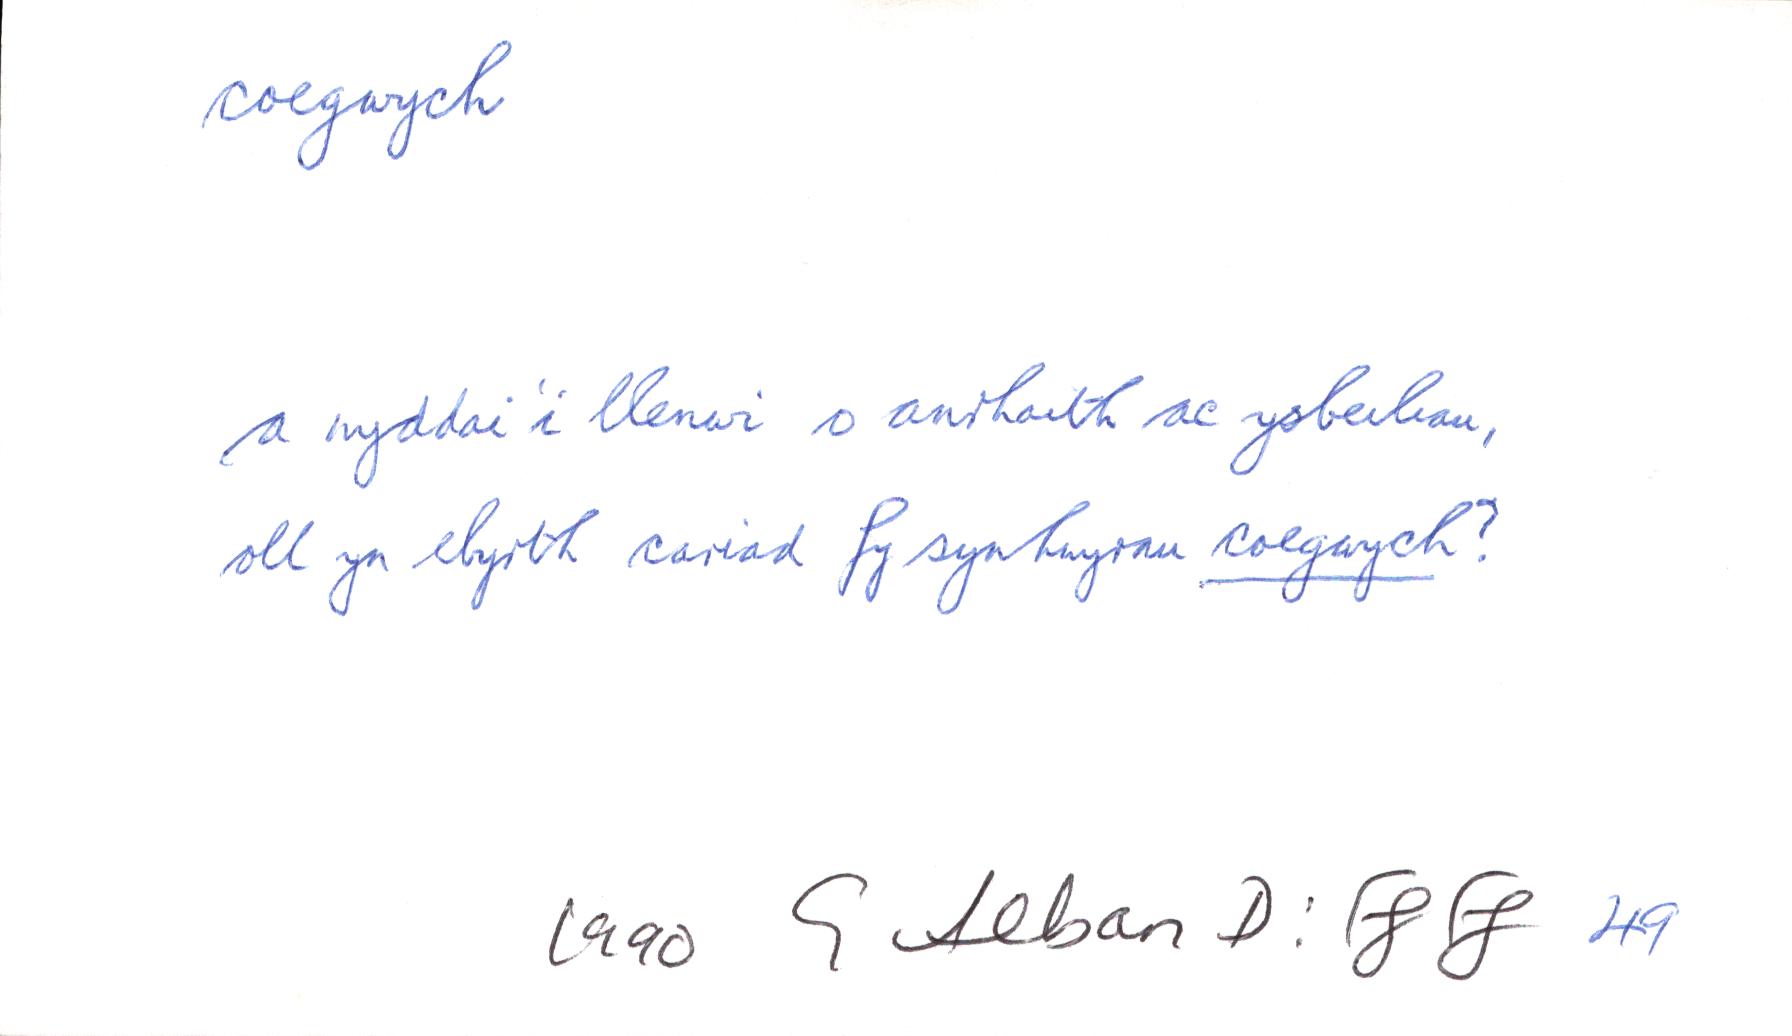 coegwych
a nyddai'i llenwi o anrhaith ac ysbeiliau,
oll yn ebyrth cariad fy synhwyrau coegwych?
1990 G Alban D: FfFf 49